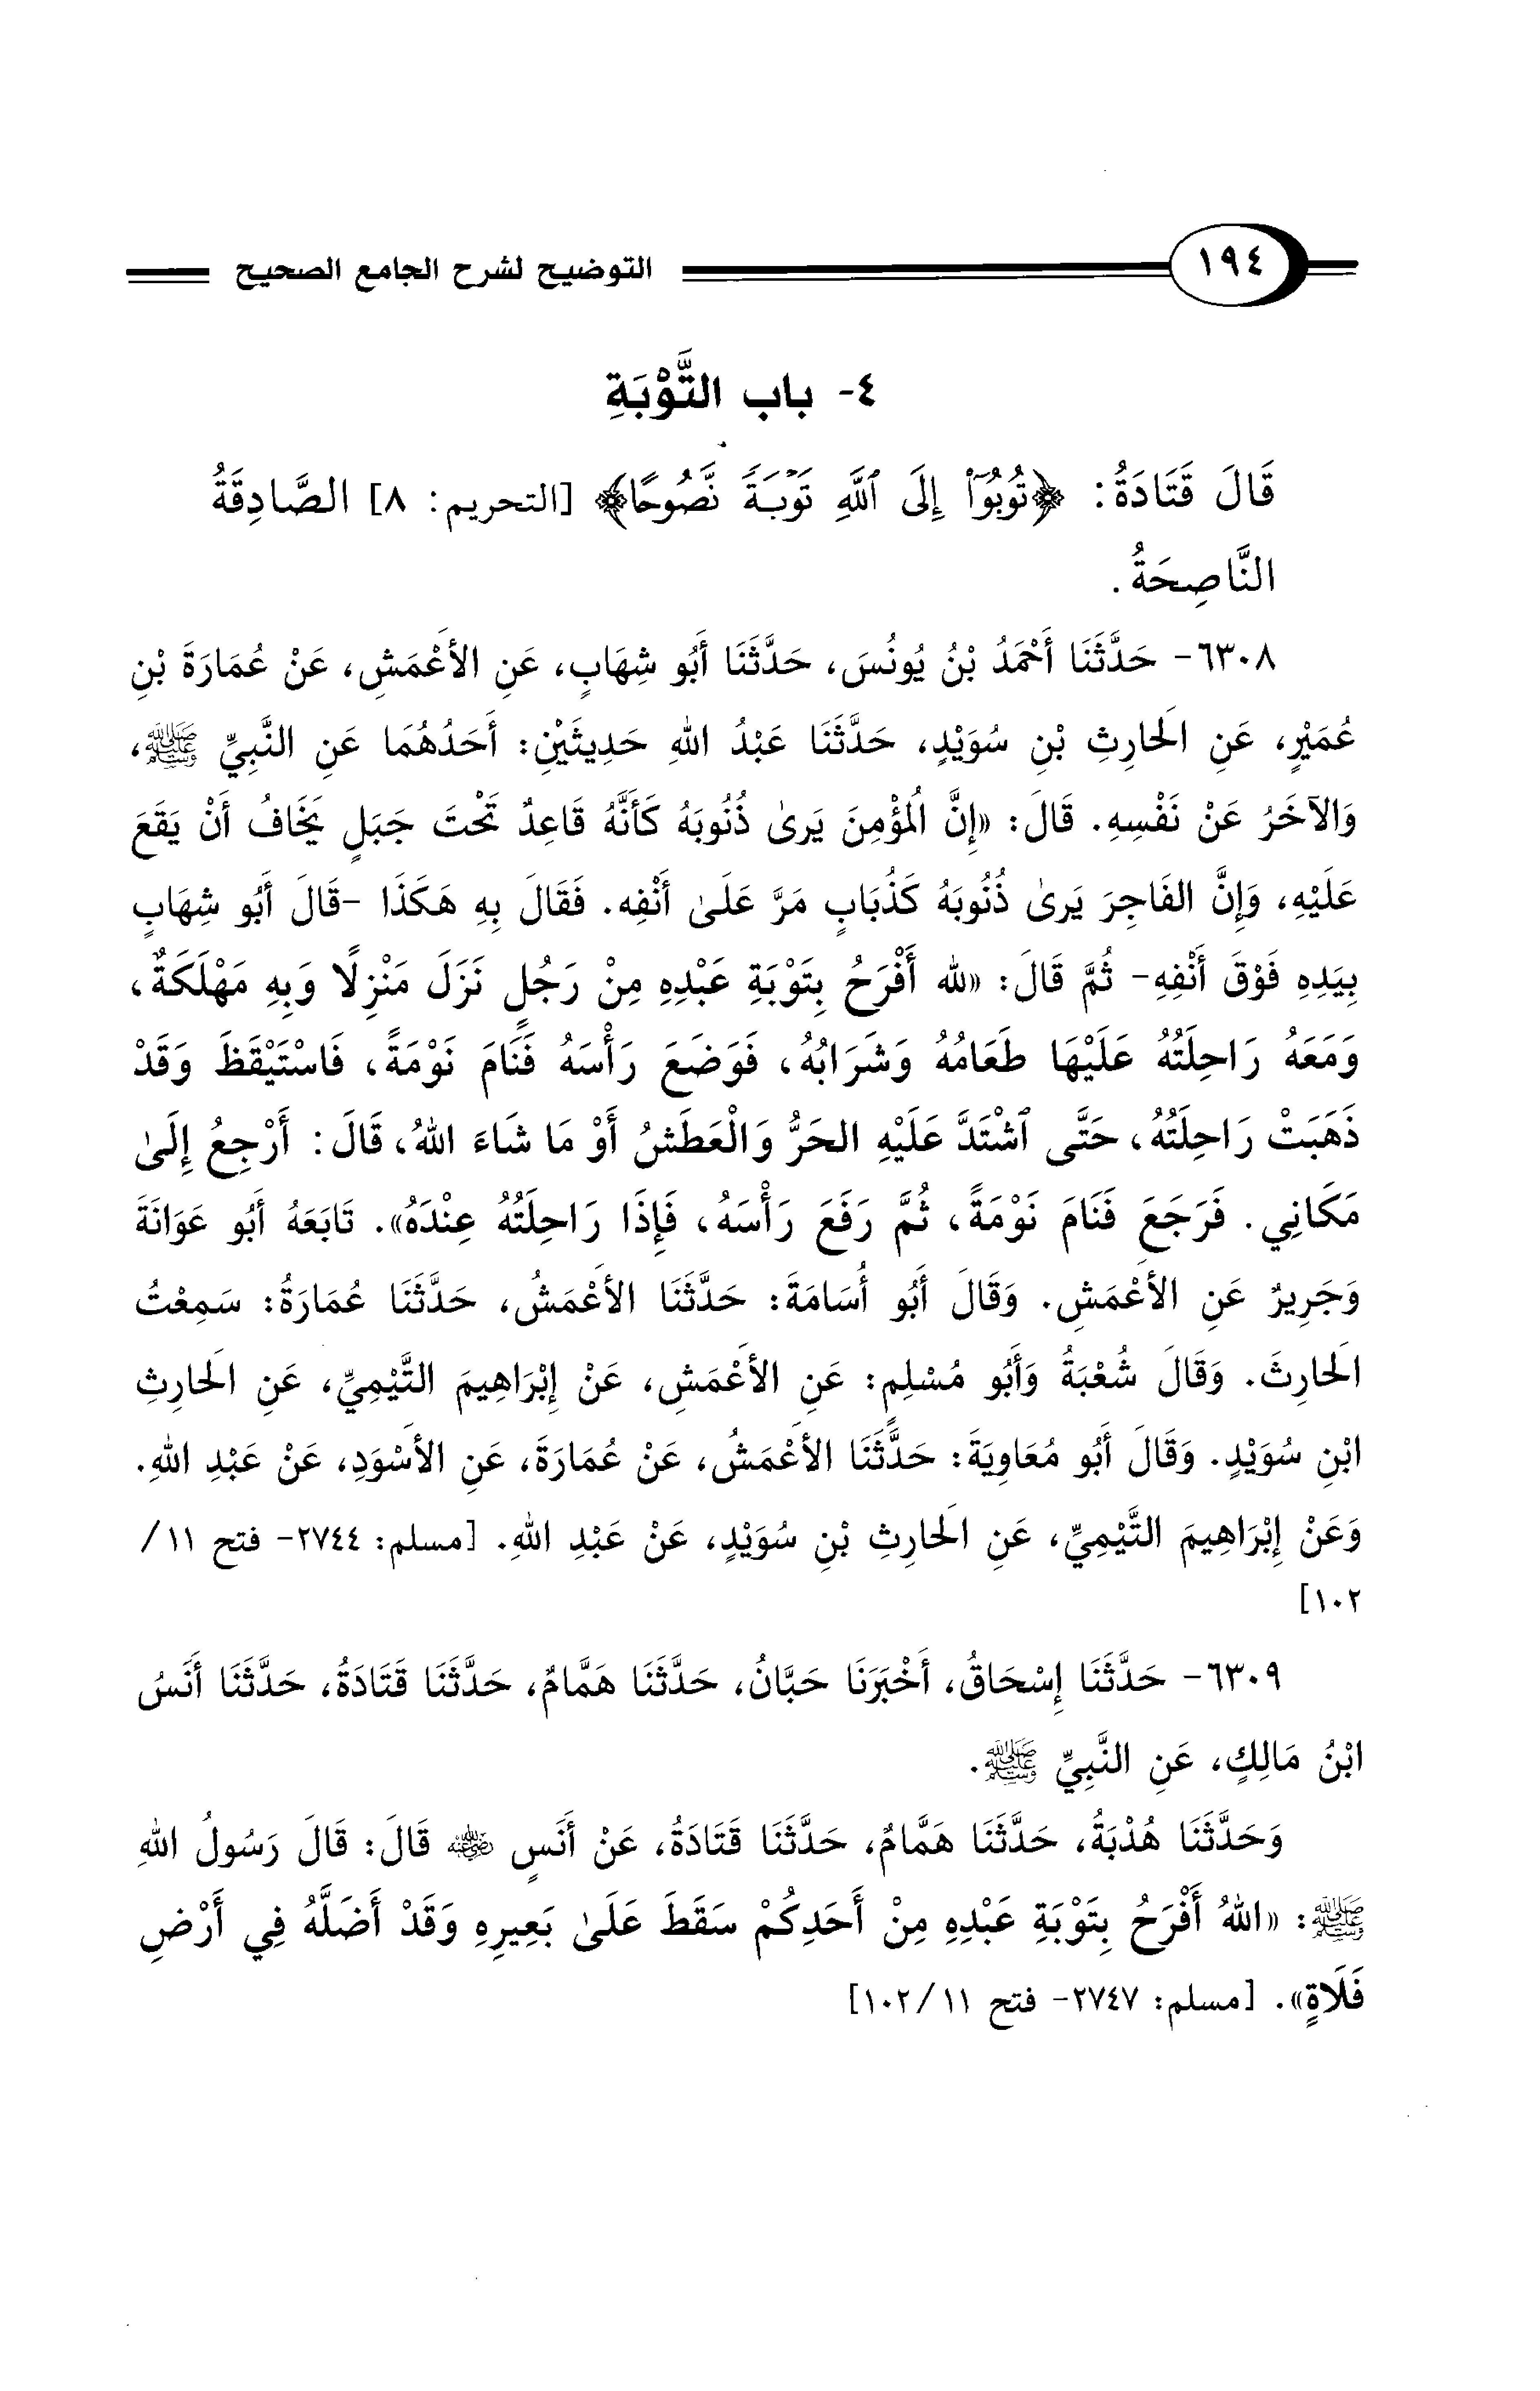 ١٩٤ التوضيح لشرح الجامع الصحيح
٤- باب التَّوْبَةِ
قَالَ قَتَادَةُ: ﴿تُوبُوٓاْ إِلَى ٱللَّهِ تَوۡبَةً نَّصُوحًا﴾ [التحريم: ٨] الصَّادِقَةُ
النَّاصِحَةُ.
٦٣٠٨- حَدَّثَنَا أَحْمَدُ بْنُ يُونُسَ، حَدَّثَنَا أَبُو شِهَابٍ، عَنِ الأَعْمَشِ، عَنْ عُمَارَةَ بْنِ
عُمَيْرٍ، عَنِ الَحارِثِ بْنِ سُوَيْدٍ، حَدَّثَنَا عَبْدُ اللهِ حَدِيثَيْنِ: أَحَدُهُمَا عَنِ النَّبِيِّ ﷺ،
وَالآخَرُ عَنْ نَفْسِهِ. قَالَ: «إِنَّ الُمؤْمِنَ يَرىٰ ذُنُوبَهُ كَأَنَّهُ قَاعِدٌ تَحْتَ جَبَلٍ يَخَافُ أَنْ يَقَعَ
عَلَيْهِ، وَإِنَّ الفَاجِرَ يَرىٰ ذُنُوبَهُ كَذُبَابٍ مَرَّ عَلَىٰ أَنْفِهِ. فَقَالَ بِهِ هَكَذَا -قَالَ أَبُو شِهَابٍ
بِيَدِهِ فَوْقَ أَنْفِهِ- ثُمَّ قَالَ: «لله أَفْرَحُ بِتَوْبَةِ عَبْدِهِ مِنْ رَجُلٍ نَزَلَ مَنْزِلًا وَبِهِ مَهْلَكَةٌ،
وَمَعَهُ رَاحِلَتُهُ عَلَيْهَا طَعَامُهُ وَشَرَابُهُ، فَوَضَعَ رَأْسَهُ فَنَامَ نَوْمَةً، فَاسْتَيْقَظَ وَقَدْ
ذَهَبَتْ رَاحِلَتُهُ، حَتَّى ٱشْتَدَّ عَلَيْهِ الحَرُّ وَالْعَطَشُ أَوْ مَا شَاءَ اللهُ، قَالَ: أَرْجِعُ إِلَىٰ
مَكَانِي. فَرَجَعَ فَنَامَ نَوْمَةً، ثُمَّ رَفَعَ رَأْسَهُ، فَإِذَا رَاحِلَتُهُ عِنْدَهُ». تَابَعَهُ أَبُو عَوَانَةَ
وَجَرِيرٌ عَنِ الأَعْمَشِ. وَقَالَ أَبُو أُسَامَةَ: حَدَّثَنَا الأَعْمَشُ، حَدَّثَنَا عُمَارَةُ: سَمِعْتُ
الَحارِثَ. وَقَالَ شُعْبَةُ وَأَبُو مُسْلِمٍ: عَنِ الأَعْمَشِ، عَنْ إِبْرَاهِيمَ التَّيْمِيِّ، عَنِ الَحارِثِ
ابْنِ سُوَيْدٍ. وَقَالَ أَبُو مُعَاوِيَةَ: حَدَّثَنَا الأَعْمَشُ، عَنْ عُمَارَةَ، عَنِ الأَسْوَدِ، عَنْ عَبْدِ اللهِ.
وَعَنْ إِبْرَاهِيمَ التَّيْمِيِّ، عَنِ الَحارِثِ بْنِ سُوَيْدٍ، عَنْ عَبْدِ اللهِ. [مسلم: ٢٧٤٤- فتح ١١/
١٠٢]
٦٣٠٩- حَدَّثَنَا إِسْحَاقُ، أَخْبَرَنَا حَبَّانُ، حَدَّثَنَا هَمَّامٌ، حَدَّثَنَا قَتَادَةُ، حَدَّثَنَا أَنَسُ
ابْنُ مَالِكٍ، عَنِ النَّبِيِّ ﷺ.
وَحَدَّثَنَا هُدْبَةُ، حَدَّثَنَا هَمَّامٌ، حَدَّثَنَا قَتَادَةُ، عَنْ أَنَسٍ رضي الله عنه قَالَ: قَالَ رَسُولُ اللهِ
ﷺ: «اللهُ أَفْرَحُ بِتَوْبَةِ عَبْدِهِ مِنْ أَحَدِكُمْ سَقَطَ عَلَىٰ بَعِيرِهِ وَقَدْ أَضَلَّهُ فِي أَرْضِ
فَلَاةٍ». [مسلم: ٢٧٤٧- فتح ١١/ ١٠٢]